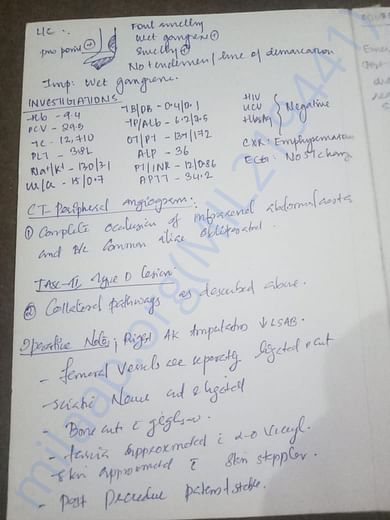 L/E :-
Foul smelling
wet gangrene ⊕
pus point ⊕→
Swelling ⊕
No tenderness / line of demarcation
Imp: Wet gangrene.
INVESTIGATIONS
Hb - 9.4
PCV - 29.5
TC - 12,710
PLT - 3.82
Na+/K+ - 130/3.1
U/Cr - 15/0.7
TB/DB - 0.4/0.1
TP/Alb - 6.2/2.5
OT/PT - 137/172
ALP - 36
PT/INR - 12/0.86
APTT - 34.2
HIV
HCV
HbsAg
Negative
CXR: Emphysematous
ECG: No ST change
CT- Peripheral angiogram:
① Complete occlusion of infrarenal abdominal aorta
and B/L common iliac
TASC-II Type D lesion
② Collateral pathways as described above.
Operative Note; Right AK Amputation ↓ LSAB.
- Femoral Vessels are separately ligated & cut
- Sciatic Nerve cut & ligated
- Bone cut c̄ gigli saw.
- fascia approximated c̄ 2-0 Vicryl.
- Skin approximated c̄ skin stapler.
- Post Procedure patient stable.
milaap.org(MIL219441